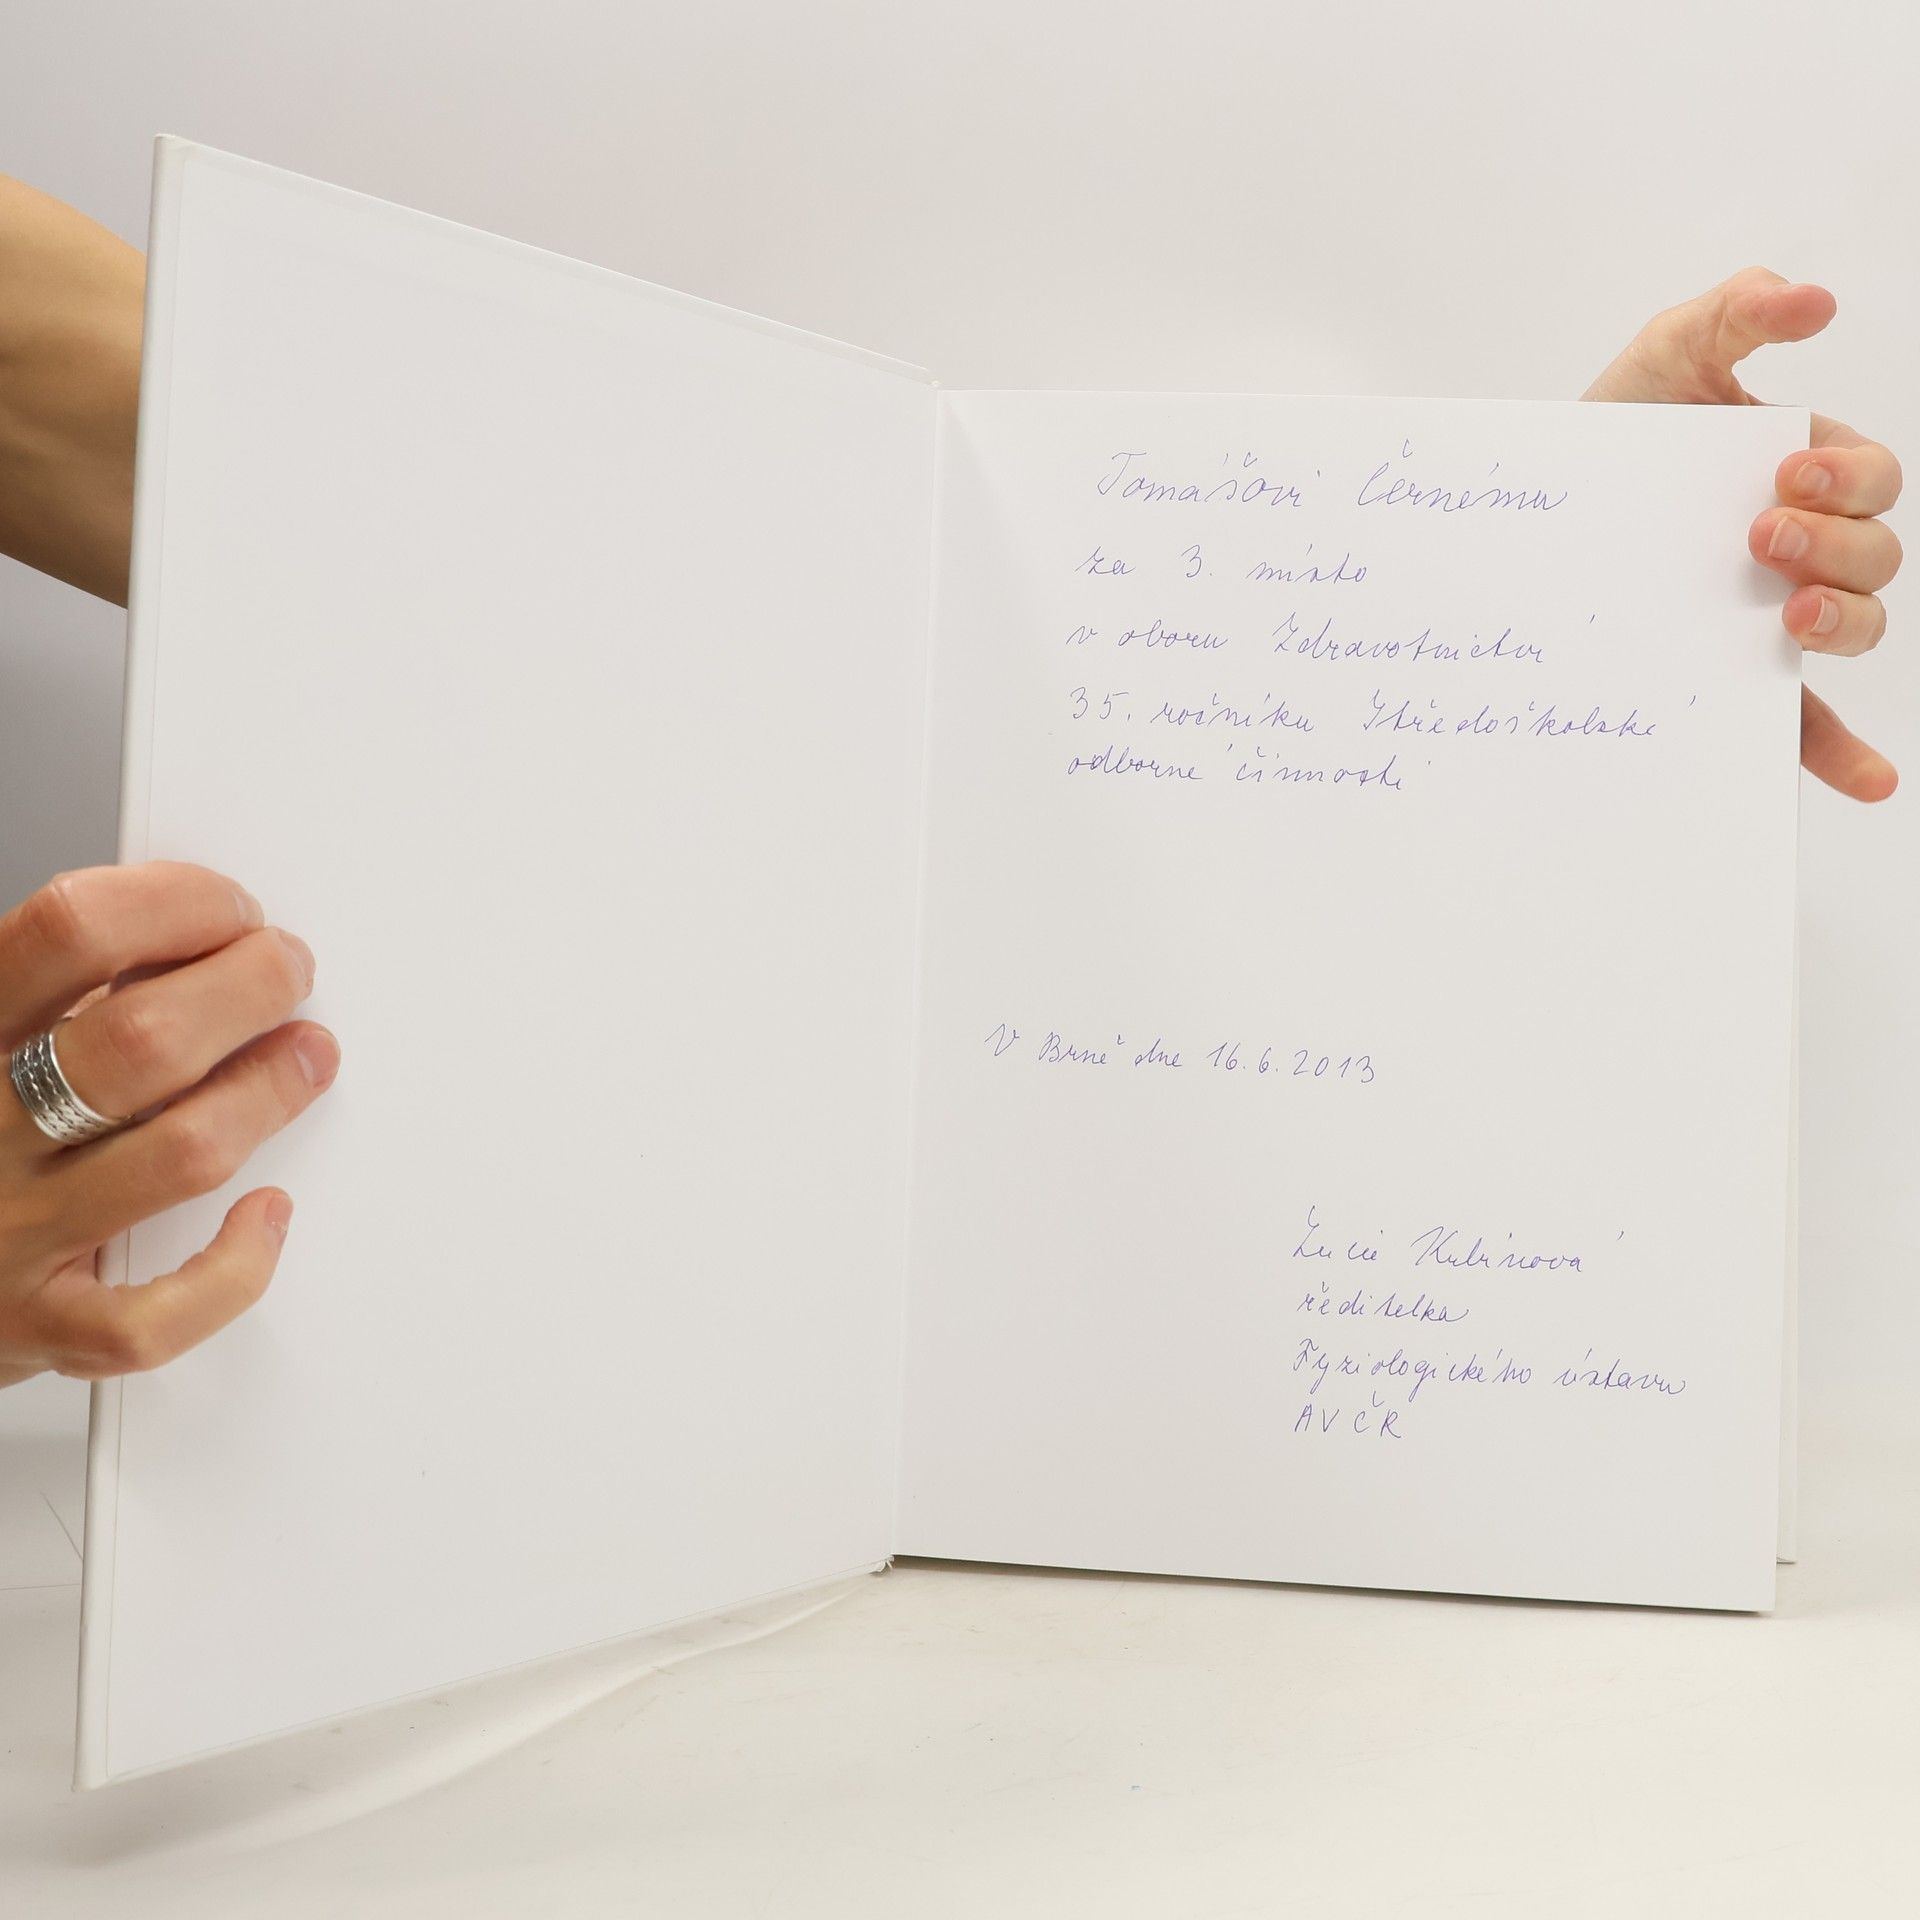 Tomášovi Černému
za 3. místo
v oboru Zdravotnictví
35. ročníku Středoškolské
odborné činnosti
V Brně dne 16.6.2013
Lucie Kubínová
ředitelka
Fyziologického ústavu
AV ČR